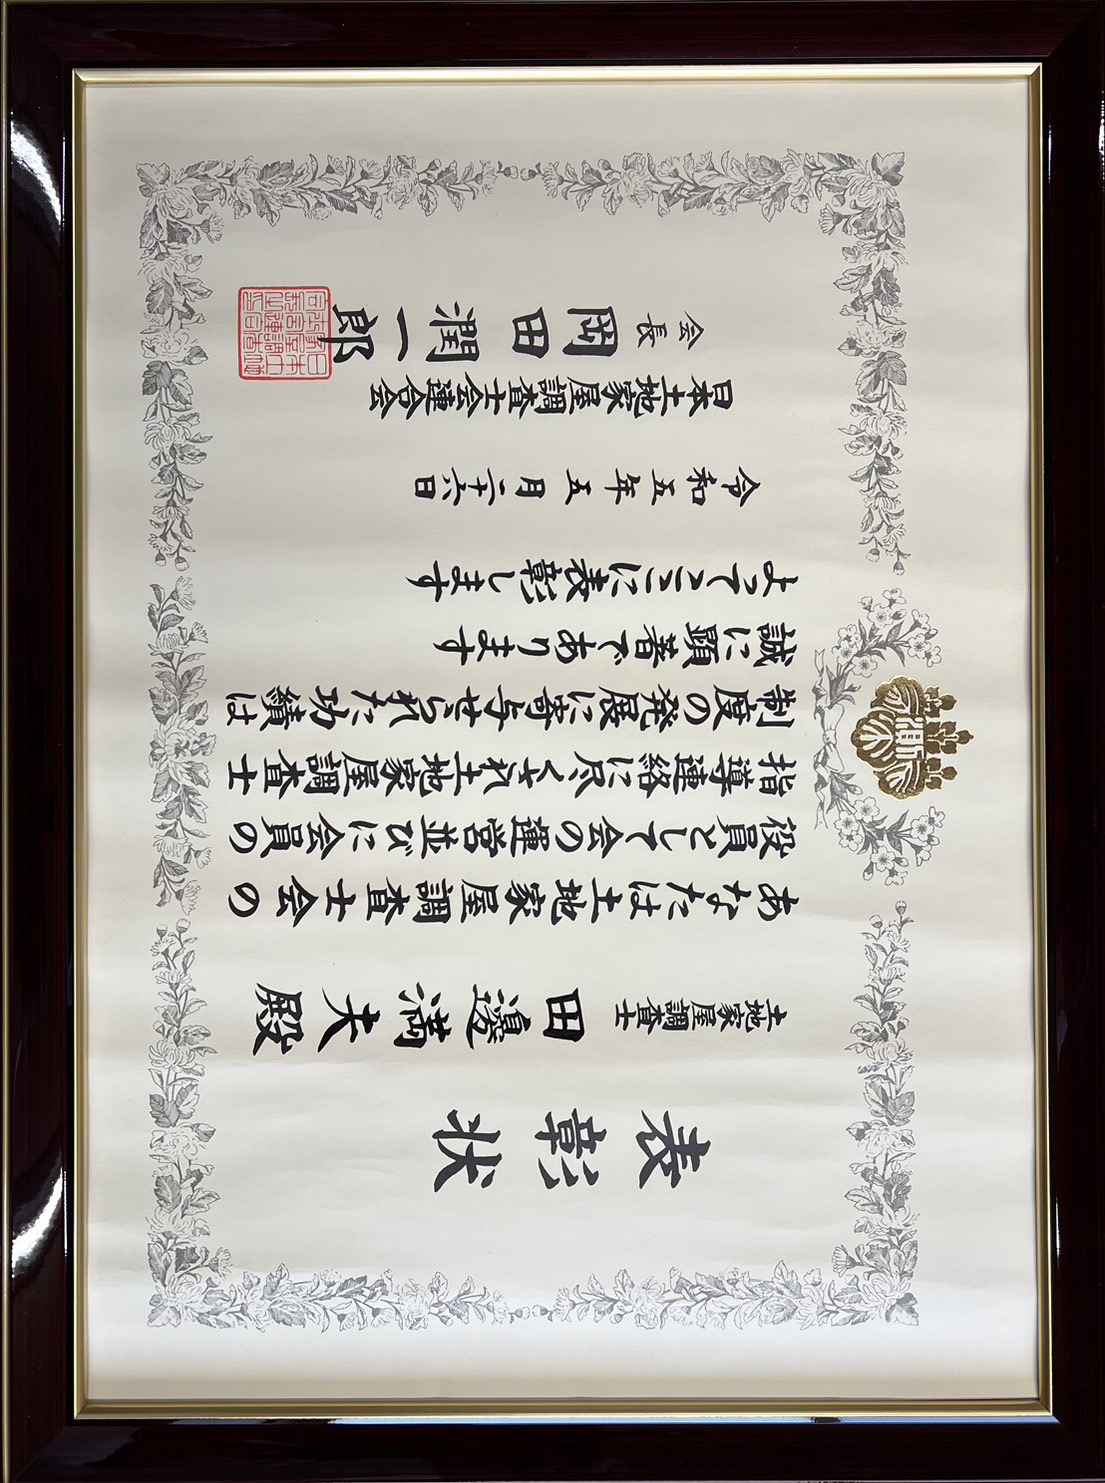 表彰状
土地家屋調査士 田邊満夫殿
あなたは土地家屋調査士会の
役員として会の運営並びに会員の
指導連絡に尽くされ土地家屋調査士
制度の発展に寄与せられた功績は
誠に顕著であります
よってここに表彰します
令和五年五月二十六日
日本土地家屋調査士会連合会
会長 岡田潤一郎